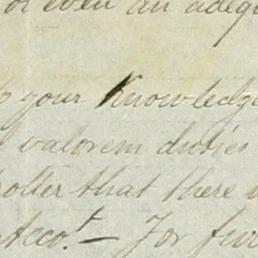 or even an adeq
your Knowledge
valorem duties
older that there
Acco.t — For fur